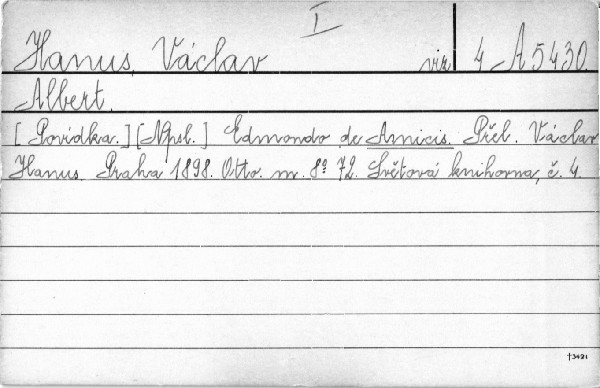 I
Hanus, Václav viz 4 A 5430.
Albert.
[Povídka.] [Npsl.] Edmondo de Amicis. Přel. Václav
Hanus. Praha 1898. Otto. m. 8º 72. Světová knihovna, č. 4.
†3421